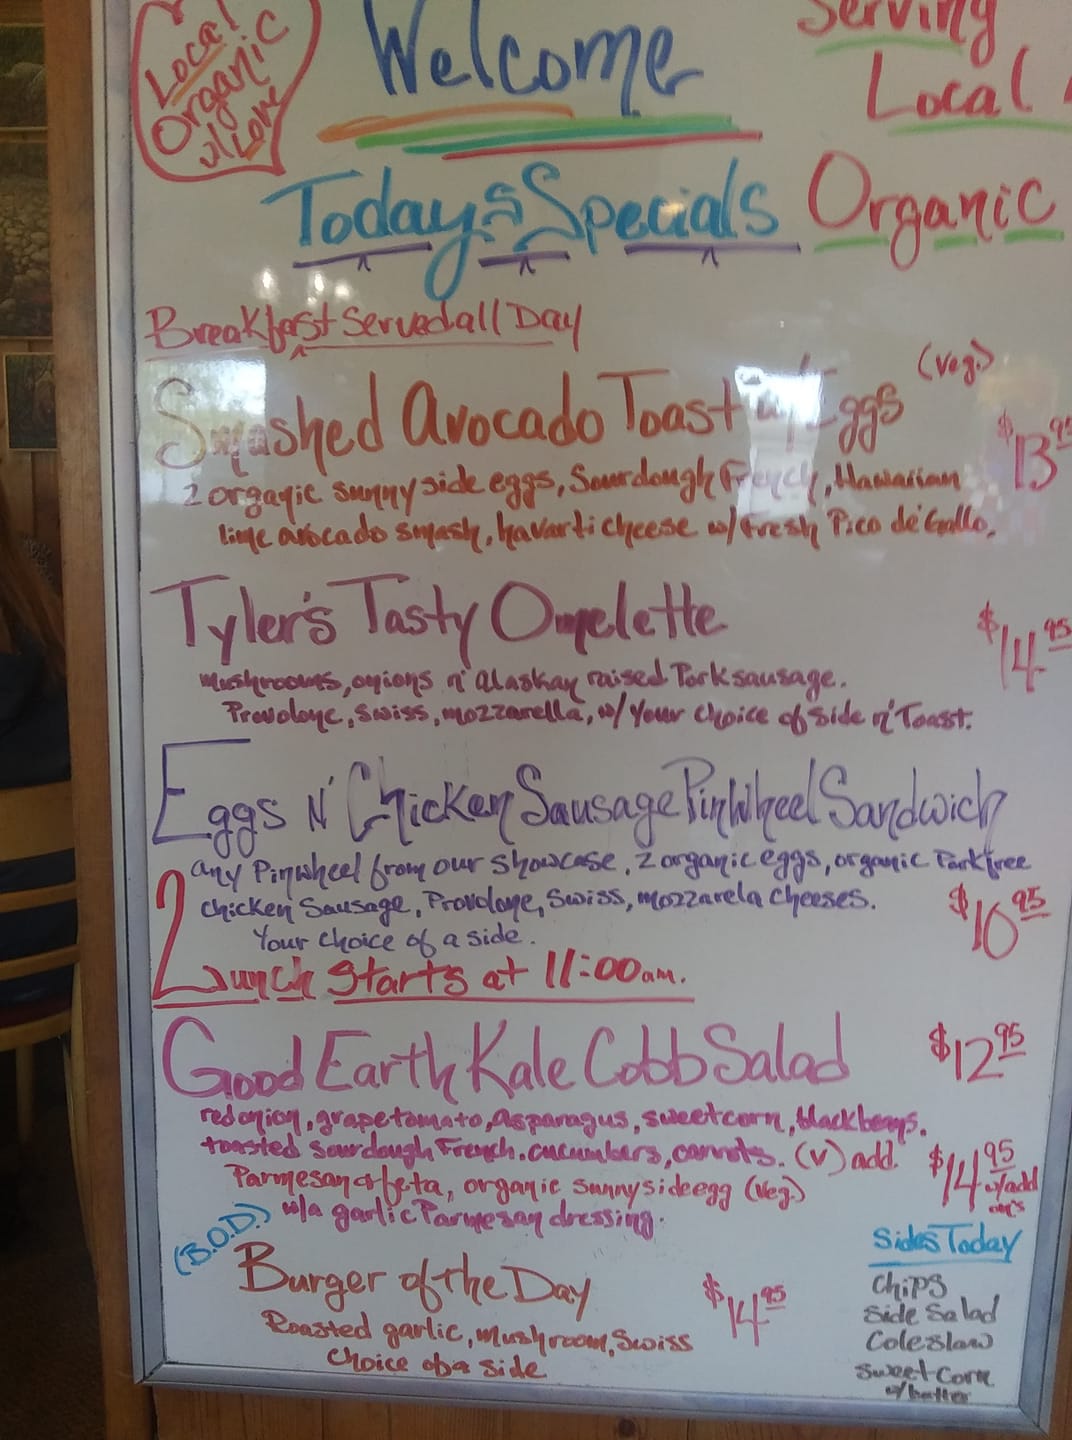 Local
Organic
w/ Love
Welcome
Serving
Local
Organic
Todays Specials
Breakfast Served all Day
Smashed Avocado Toast w/ Eggs (veg.)
$13.95
2 organic sunny side eggs, Sourdough French, Hawaiian
lime avocado smash, havarti cheese w/ Fresh Pico de' Gallo.
Tyler's Tasty Omelette
$14.95
mushrooms, onions n' alaskan raised Pork sausage.
Provolone, swiss, mozzarella, w/ your choice of side n' Toast.
Eggs N' Chicken Sausage PinWheel Sandwich
any Pinwheel from our showcase, 2 organic eggs, organic Porkfree
chicken Sausage, Provolone, Swiss, mozzarela cheeses.
$10.95
Your choice of a side.
Lunch Starts at 11:00am.
Good Earth Kale Cobb Salad
$12.95
red onion, grape tomato, asparagus, sweet corn, black beans.
toasted sourdough French. cucumbers, carrots. (v) add
$14.95
w/add
Parmesan & feta, organic sunny side egg (veg.)
w/a garlic Parmesan dressing.
(B.O.D.)
Burger of the Day
$14.95
Roasted garlic, mushroom, Swiss
choice of a side
Sides Today
Chips
Side Salad
Coleslaw
Sweet Corn
w/butter